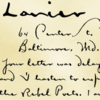 Lanier
by Center St.
Baltimore, Md.
your letter was delay
and I hasten to exp
the Rebel Poets. I am